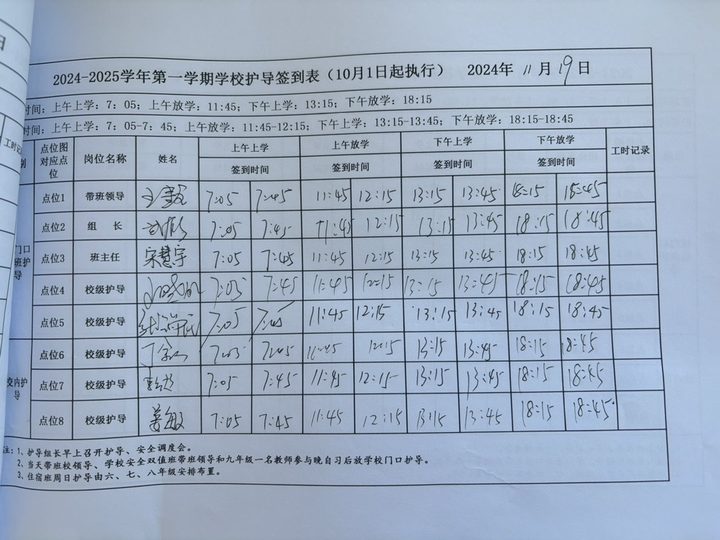 2024-2025学年第一学期学校护导签到表（10月1日起执行） 2024年 11月19日
时间：上午上学：7：05；上午放学：11:45；下午上学：13:15；下午放学：18:15
时间：上午上学：7：05-7：45；上午放学：11:45-12:15；下午上学：13:15-13:45；下午放学：18:15-18:45
点位图对应点位 岗位名称 姓名 上午上学 上午放学 下午上学 下午放学 工时记录
签到时间 签到时间 签到时间 签到时间
点位1 带班领导 7:05 7:45 11:45 12:15 13:15 13:45 18:15 18:45
点位2 组 长 7:05 7:45 11:45 12:15 13:15 13:45 18:15 18:45
门口
点位3 班主任 宋慧宇 7:05 7:45 11:45 12:15 13:15 13:45 18:15 18:45
班护导
点位4 校级护导 7:05 7:45 11:45 12:15 13:15 13:45 18:15 18:45
点位5 校级护导 7:05 11:45 12:15 13:15 13:45 18:15 18:45
点位6 校级护导 7:05 11:45 12:15 13:15 13:45 18:15 18:45
校内护导
点位7 校级护导 7:05 7:45 11:45 12:15 13:15 13:45 18:15 18:45
点位8 校级护导 7:05 7:45 11:45 12:15 13:15 13:45 18:15 18:45
注：1、护导组长早上召开护导、安全调度会。
2、当天带班校领导、学校安全双值班带班领导和九年级一名教师参与晚自习后放学校门口护导。
3、住宿班周日护导由六、七、八年级安排布置。